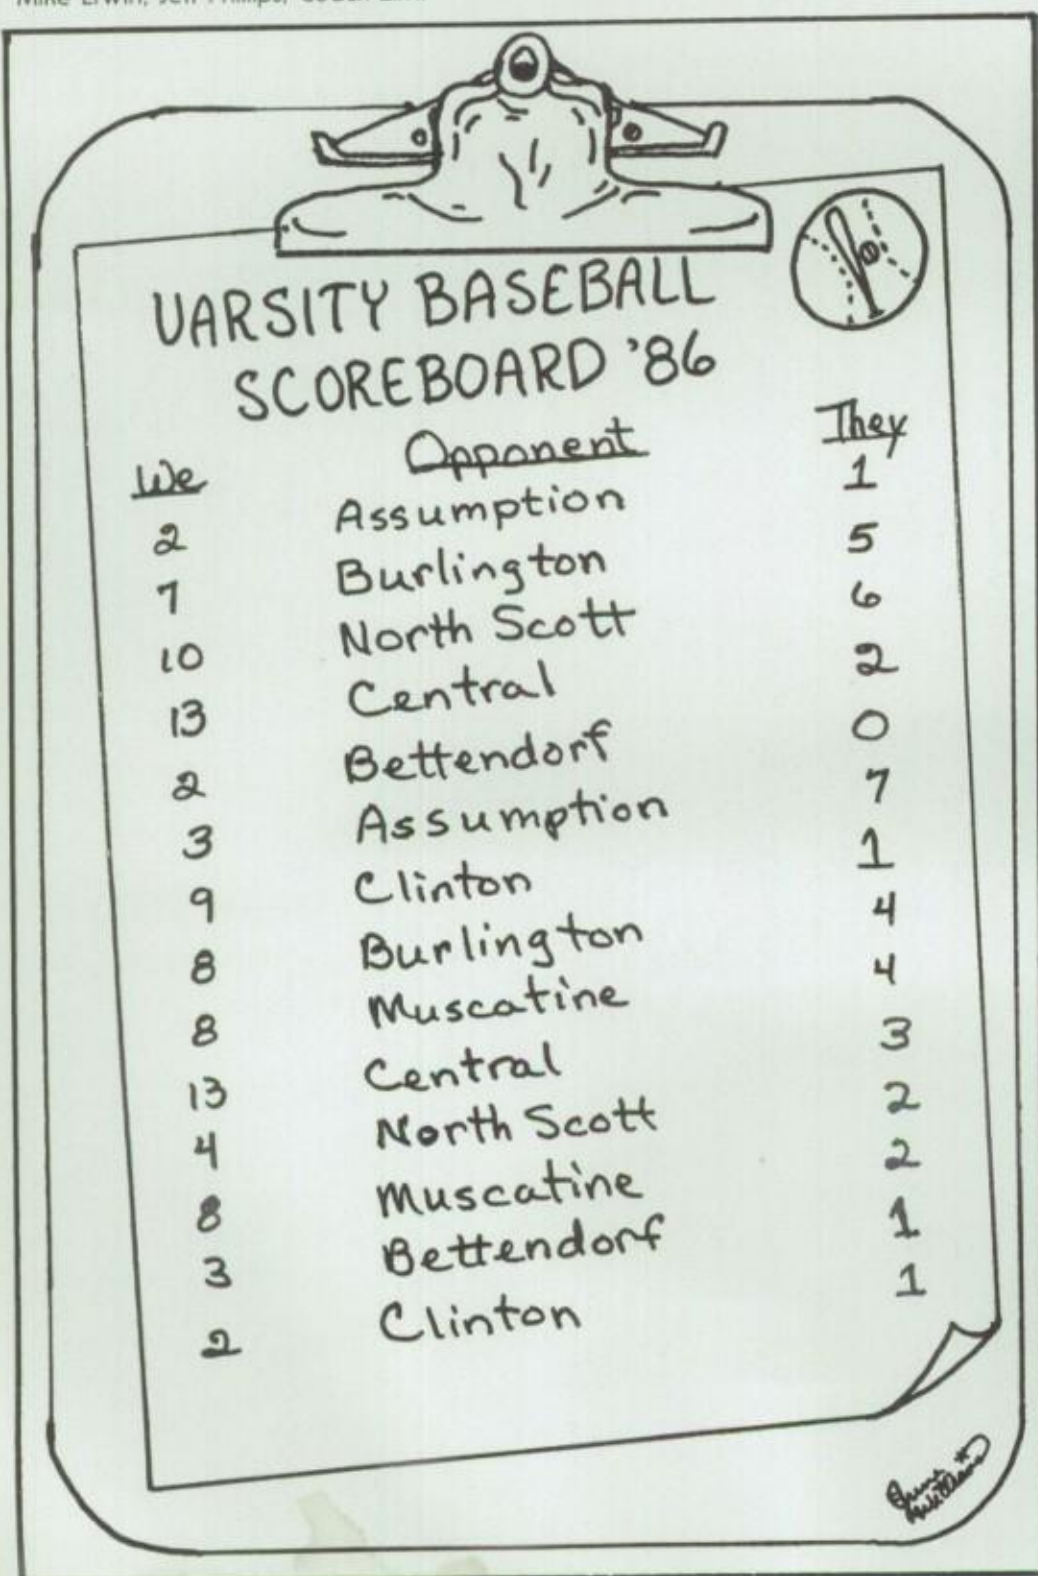 Mike Erwin, Jeff Phillips, Coach
VARSITY BASEBALL
SCOREBOARD '86
We Opponent They
2 Assumption 1
7 Burlington 5
10 North Scott 6
13 Central 2
2 Bettendorf 0
3 Assumption 7
9 Clinton 1
8 Burlington 4
8 Muscatine 4
13 Central 3
4 North Scott 2
8 Muscatine 2
3 Bettendorf 1
2 Clinton 1